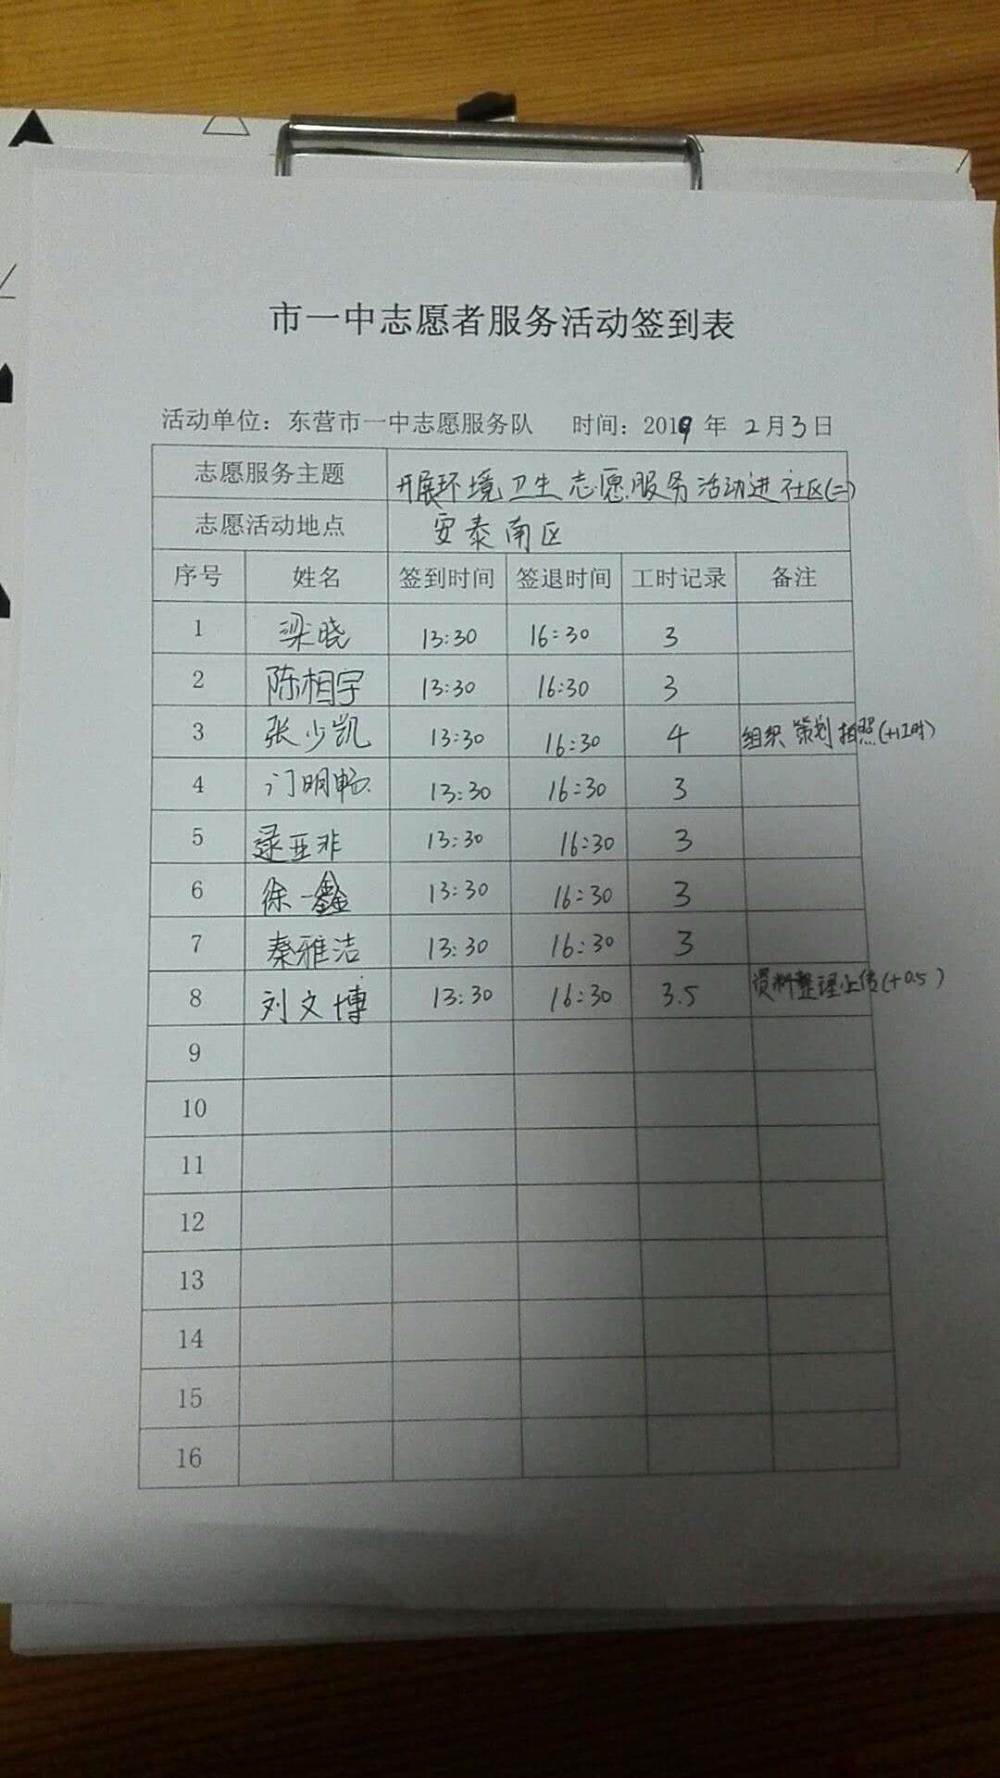 市一中志愿者服务活动签到表
活动单位：东营市一中志愿服务队 时间：2019 年 2月3日
志愿服务主题 开展环境卫生志愿服务活动进社区(二)
志愿活动地点 安泰南区
序号 姓名 签到时间 签退时间 工时记录 备注
1 梁晓 13:30 16:30 3
2 陈相宇 13:30 16:30 3
3 张少凯 13:30 16:30 4 组织 策划 拍照(+1工时)
4 门明畅 13:30 16:30 3
5 逯亚非 13:30 16:30 3
6 徐一鑫 13:30 16:30 3
7 秦雅洁 13:30 16:30 3
8 刘文博 13:30 16:30 3.5 资料整理上传(+0.5)
9
10
11
12
13
14
15
16